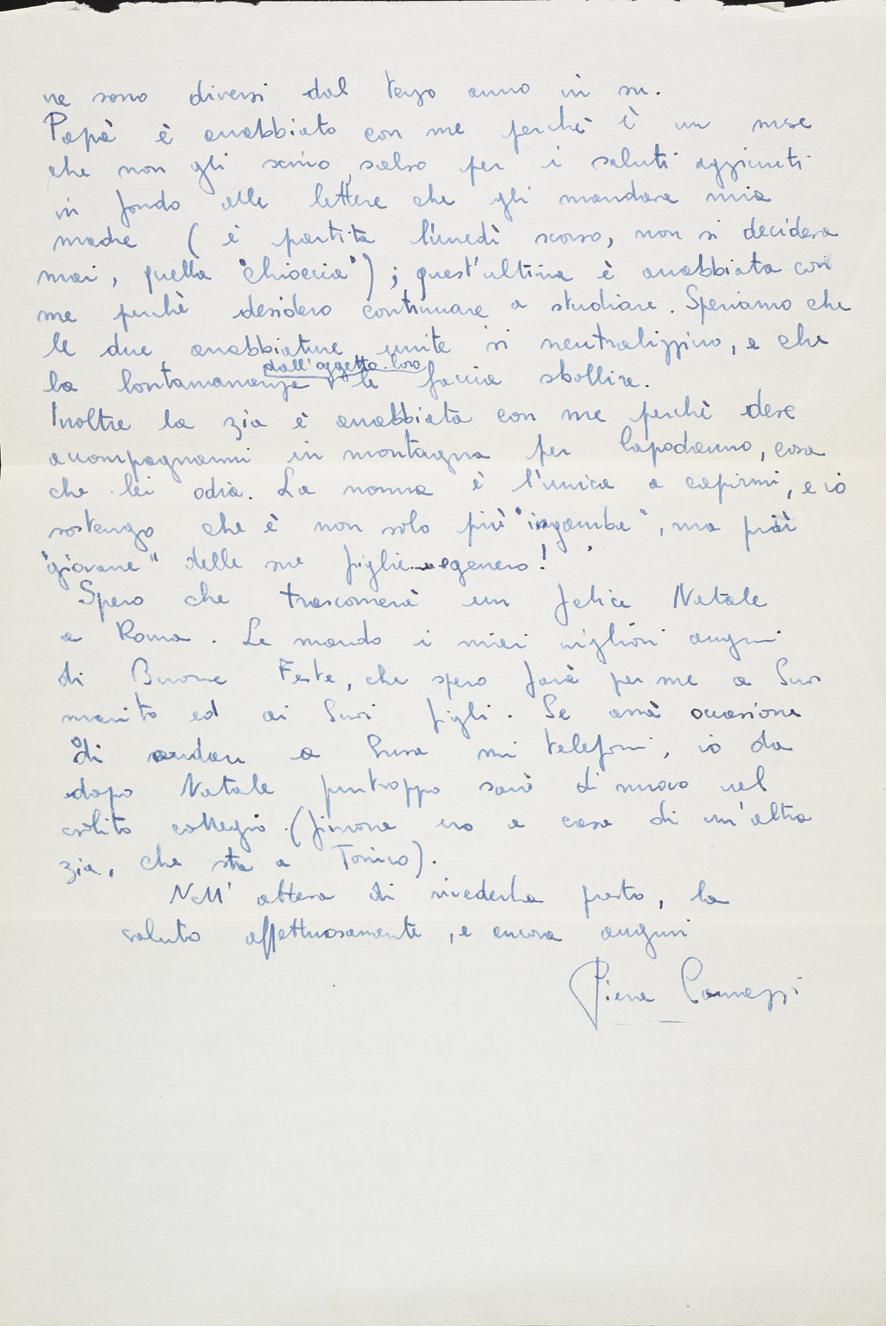 ne sono diversi dal terzo anno in su.
Papà è arrabbiato con me perchè è un mese
che non gli scrivo, salvo per i saluti aggiunti
in fondo alle lettere che gli mandava mia
madre (è partita lunedì scorso, non si decideva
mai, quella "chioccia"); quest'ultima è arrabbiata con
me perchè desidero continuare a studiare. Speriamo che
le due arrabbiature unite si neutralizzino, e che
dall'oggetto loro
la lontananza le faccia sbollire.
Inoltre la zia è arrabbiata con me perchè deve
accompagnarmi in montagna per Capodanno, cosa
che lei odia. La nonna è l'unica a capirmi, e io
sostengo che è non solo più "in gamba", ma più
"giovane" delle sue figlie e genero!
Spero che trascorrerà un felice Natale
a Roma. Le mando i miei migliori auguri
di Buone Feste, che spero farà per me a Suo
marito ed ai Suoi figli. Se avrà occasione
di andare a Susa mi telefoni, io da
dopo Natale purtroppo sarò di nuovo nel
solito collegio. (finora ero a casa di un'altra
zia, che sta a Torino).
Nell'attesa di rivederla presto, la
saluto affettuosamente, e ancora auguri
Piera